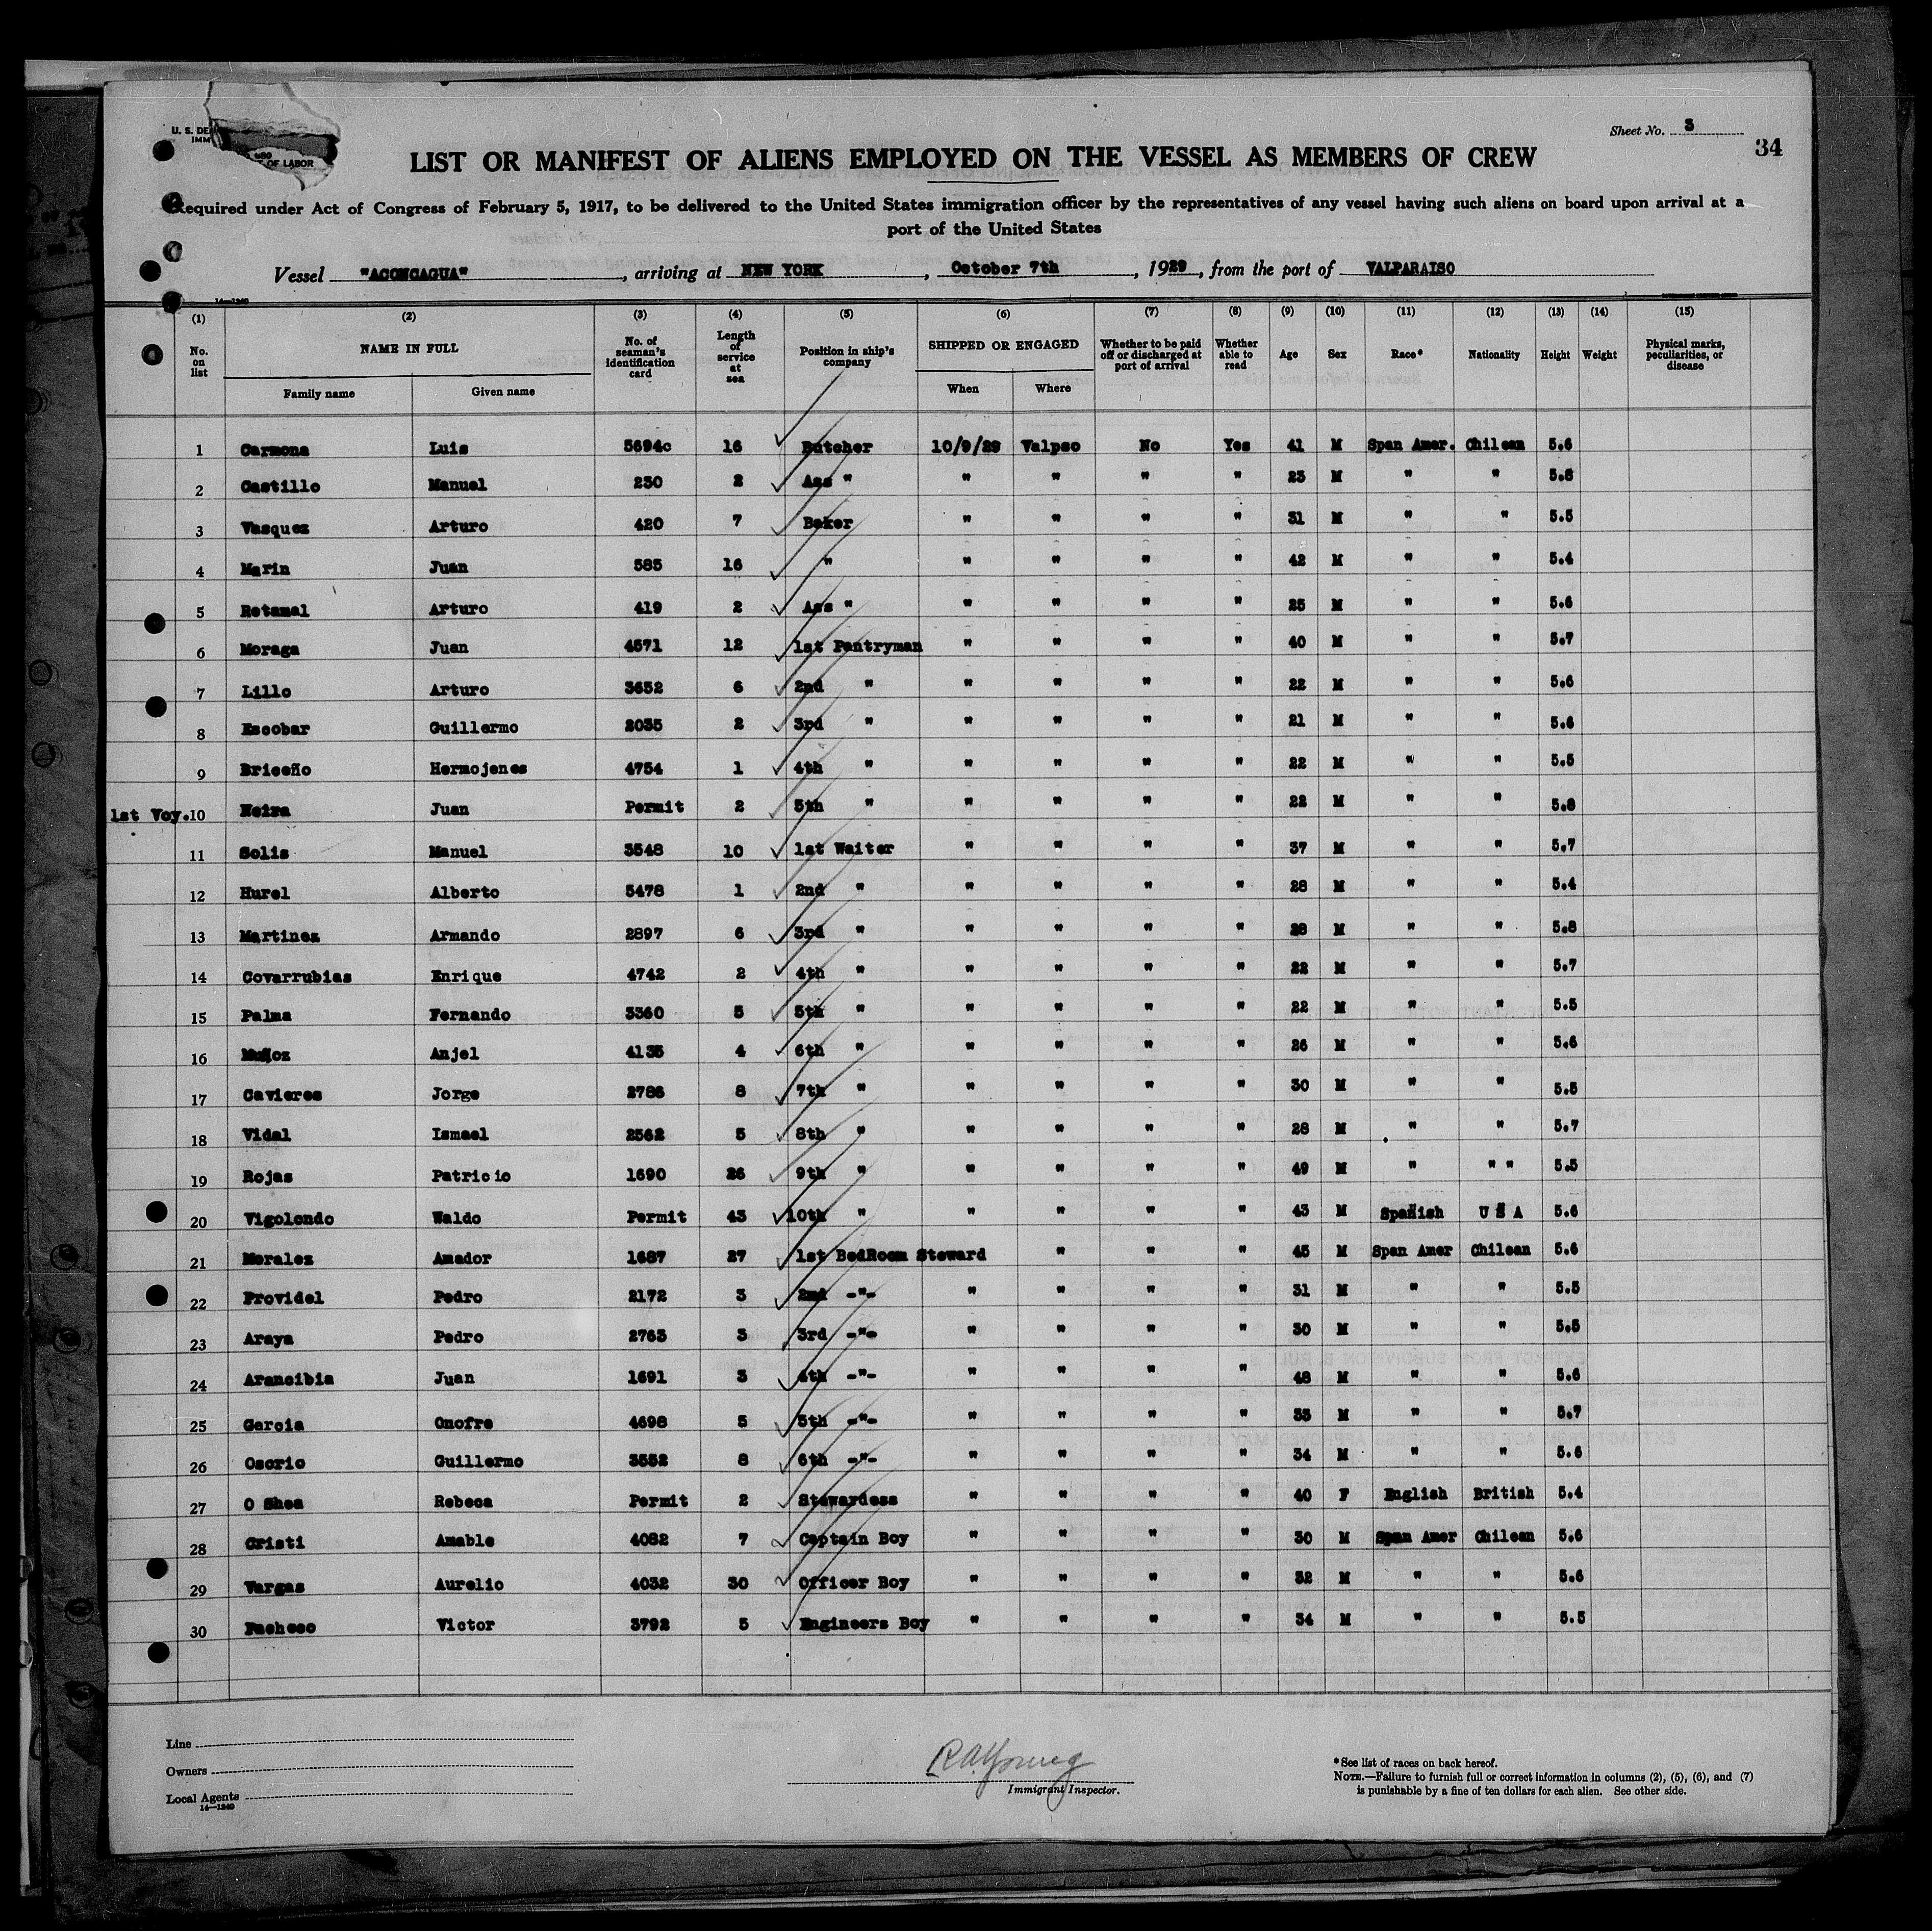 U. S. DE
IMM
OF LABOR
Sheet No. 3
34
LIST OR MANIFEST OF ALIENS EMPLOYED ON THE VESSEL AS MEMBERS OF CREW
Required under Act of Congress of February 5, 1917, to be delivered to the United States immigration officer by the representatives of any vessel having such aliens on board upon arrival at a
port of the United States
Vessel "ACONCAGUA", arriving at NEW YORK, October 7th, 1929, from the port of VALPARAISO
14—1240
(1) (2) (3) (4) (5) (6) (7) (8) (9) (10) (11) (12) (13) (14) (15)
No. on list NAME IN FULL No. of seaman's identification card Length of service at sea Position in ship's company SHIPPED OR ENGAGED Whether to be paid off or discharged at port of arrival Whether able to read Age Sex Race* Nationality Height Weight Physical marks, peculiarities, or disease
Family name Given name When Where
1 Carmona Luis 5694c 16 Butcher 10/9/29 Valpso No Yes 41 M Span Amer. Chilean 5.6
2 Castillo Manuel 230 2 Ass " " " " " 23 M " " 5.8
3 Vasquez Arturo 420 7 Baker " " " " 31 M " " 5.5
4 Marin Juan 585 16 " " " " " 42 M " " 5.4
5 Retamal Arturo 419 2 Ass " " " " " 25 M " " 5.6
6 Moraga Juan 4571 12 1st Pantryman " " " " 40 M " " 5.7
7 Lillo Arturo 3652 6 2nd " " " " " 22 M " " 5.6
8 Escobar Guillermo 2035 2 3rd " " " " " 21 M " " 5.6
9 Briceño Hermojenes 4754 1 4th " " " " " 22 M " " 5.5
1st Voy. 10 Neira Juan Permit 2 5th " " " " " 22 M " " 5.8
11 Solis Manuel 3548 10 1st Waiter " " " " 37 M " " 5.7
12 Hurel Alberto 5478 1 2nd " " " " " 28 M " " 5.4
13 Martinez Armando 2897 6 3rd " " " " " 28 M " " 5.8
14 Covarrubias Enrique 4742 2 4th " " " " " 22 M " " 5.7
15 Palma Fernando 3360 5 5th " " " " " 22 M " " 5.5
16 Muñoz Anjel 4135 4 6th " " " " " 26 M " " 5.6
17 Cavieres Jorge 2786 8 7th " " " " " 30 M " " 5.5
18 Vidal Ismael 2562 5 8th " " " " " 28 M " " 5.7
19 Rojas Patricio 1690 26 9th " " " " " 49 M " " " 5.5
20 Vigolondo Waldo Permit 43 10th " " " " " 43 M Spanish U S A 5.6
21 Moralez Amador 1687 27 1st BedRoom Steward " " " 45 M Span Amer Chilean 5.6
22 Providel Pedro 2172 3 2nd -"- " " " " 31 M " " 5.5
23 Araya Pedro 2763 3 3rd -"- " " " " 30 M " " 5.5
24 Arancibia Juan 1691 3 4th -"- " " " " 48 M " " 5.6
25 Garcia Onofre 4698 5 5th -"- " " " " 35 M " " 5.7
26 Osorio Guillermo 3552 8 6th -"- " " " " 34 M " " 5.6
27 O Shea Rebeca Permit 2 Stewardess " " " " 40 F English British 5.4
28 Cristi Amable 4082 7 Captain Boy " " " " 30 M Span Amer Chilean 5.6
29 Vargas Aurelio 4032 30 Officer Boy " " " " 32 M " " 5.6
30 Pacheco Victor 3792 5 Engineers Boy " " " " 34 M " " 5.5
Line
Owners
Local Agents
14—1240
R A Young
Immigrant Inspector.
*See list of races on back hereof.
NOTE.—Failure to furnish full or correct information in columns (2), (5), (6), and (7)
is punishable by a fine of ten dollars for each alien. See other side.